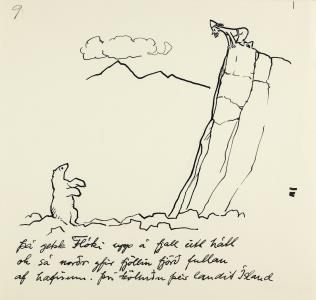 9
Þá gekk Flóki upp á fjall eitt hátt
ok sá norðr yfir fjöllin fjörð fullan
af hafísum. Því kölluðu þeir landit Ísland